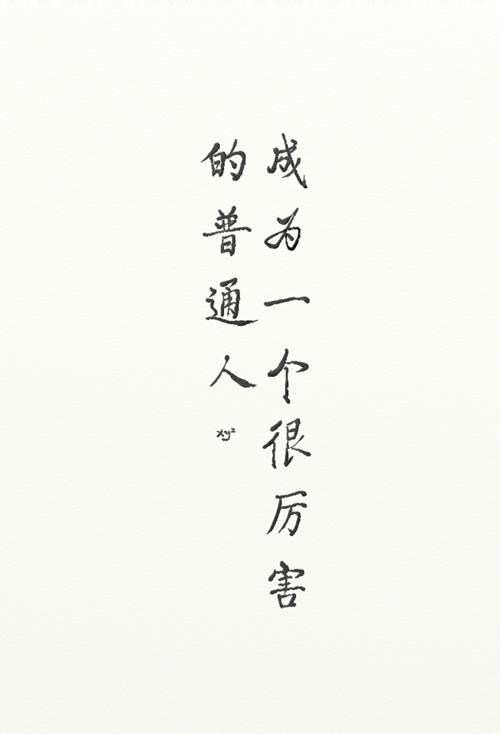 成为一个很厉害
的普通人
xyz